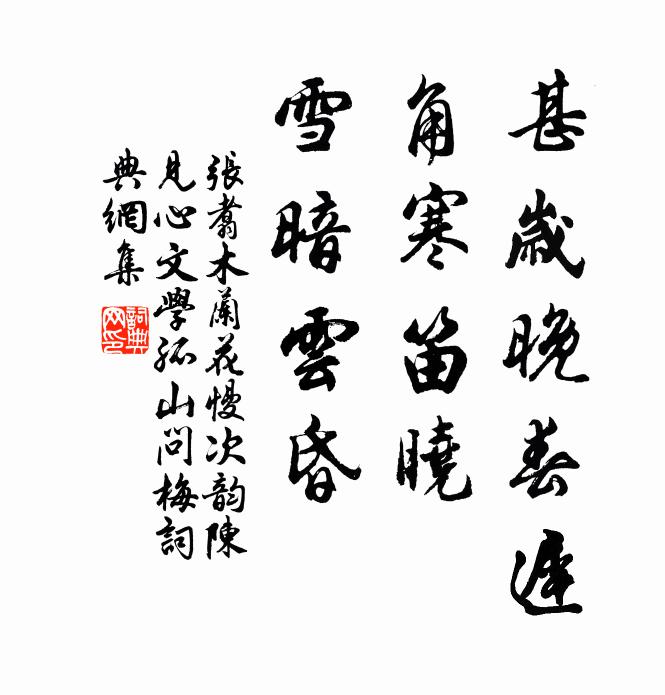 甚歲晚春遲
角寒笛曉
雪暗雲昏
張翥木蘭花慢次韵陳
見心文學孤山問梅詞
典網集
詞典
网印